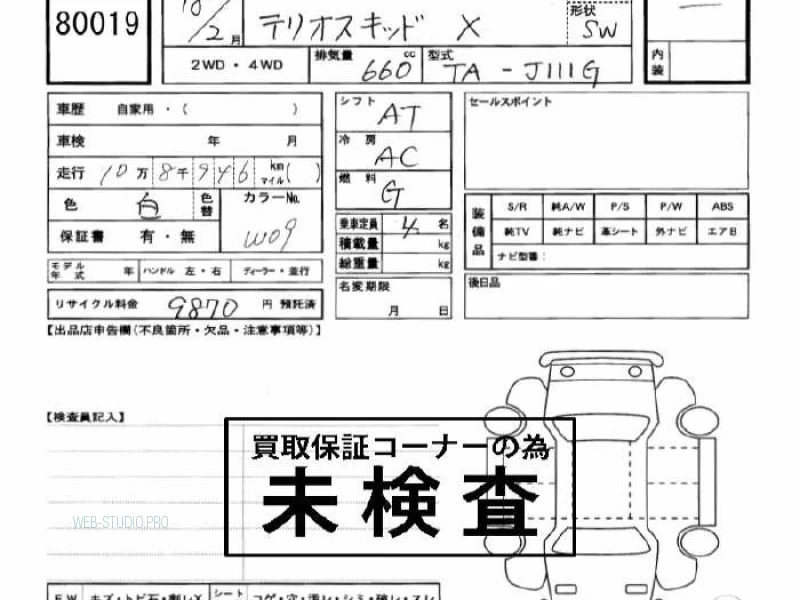 80019
/2月 テリオスキッド X
形状 SW
2WD・4WD 排気量 660 cc 型式 TA-J111G
内装
車歴 自家用・( )
車検 年 月
走行 10万8千946 km マイル( )
色 白 色替 カラーNo. W09
保証書 有・無
モデル年式 年 ハンドル 左・右 ディーラー・並行
リサイクル料金 9870 円 預託済
シフト AT
冷房 AC
燃料 G
乗車定員 4名
積載量 kg
総重量 kg
名変期限
月 日
セールスポイント
装備品 S/R 純A/W P/S P/W ABS
純TV 純ナビ 革シート 外ナビ エアB
ナビ型番：
後日品
【出品店申告欄(不良箇所・欠品・注意事項等)】
【検査員記入】
買取保証コーナーの為
未検査
WEB-STUDIO.PRO